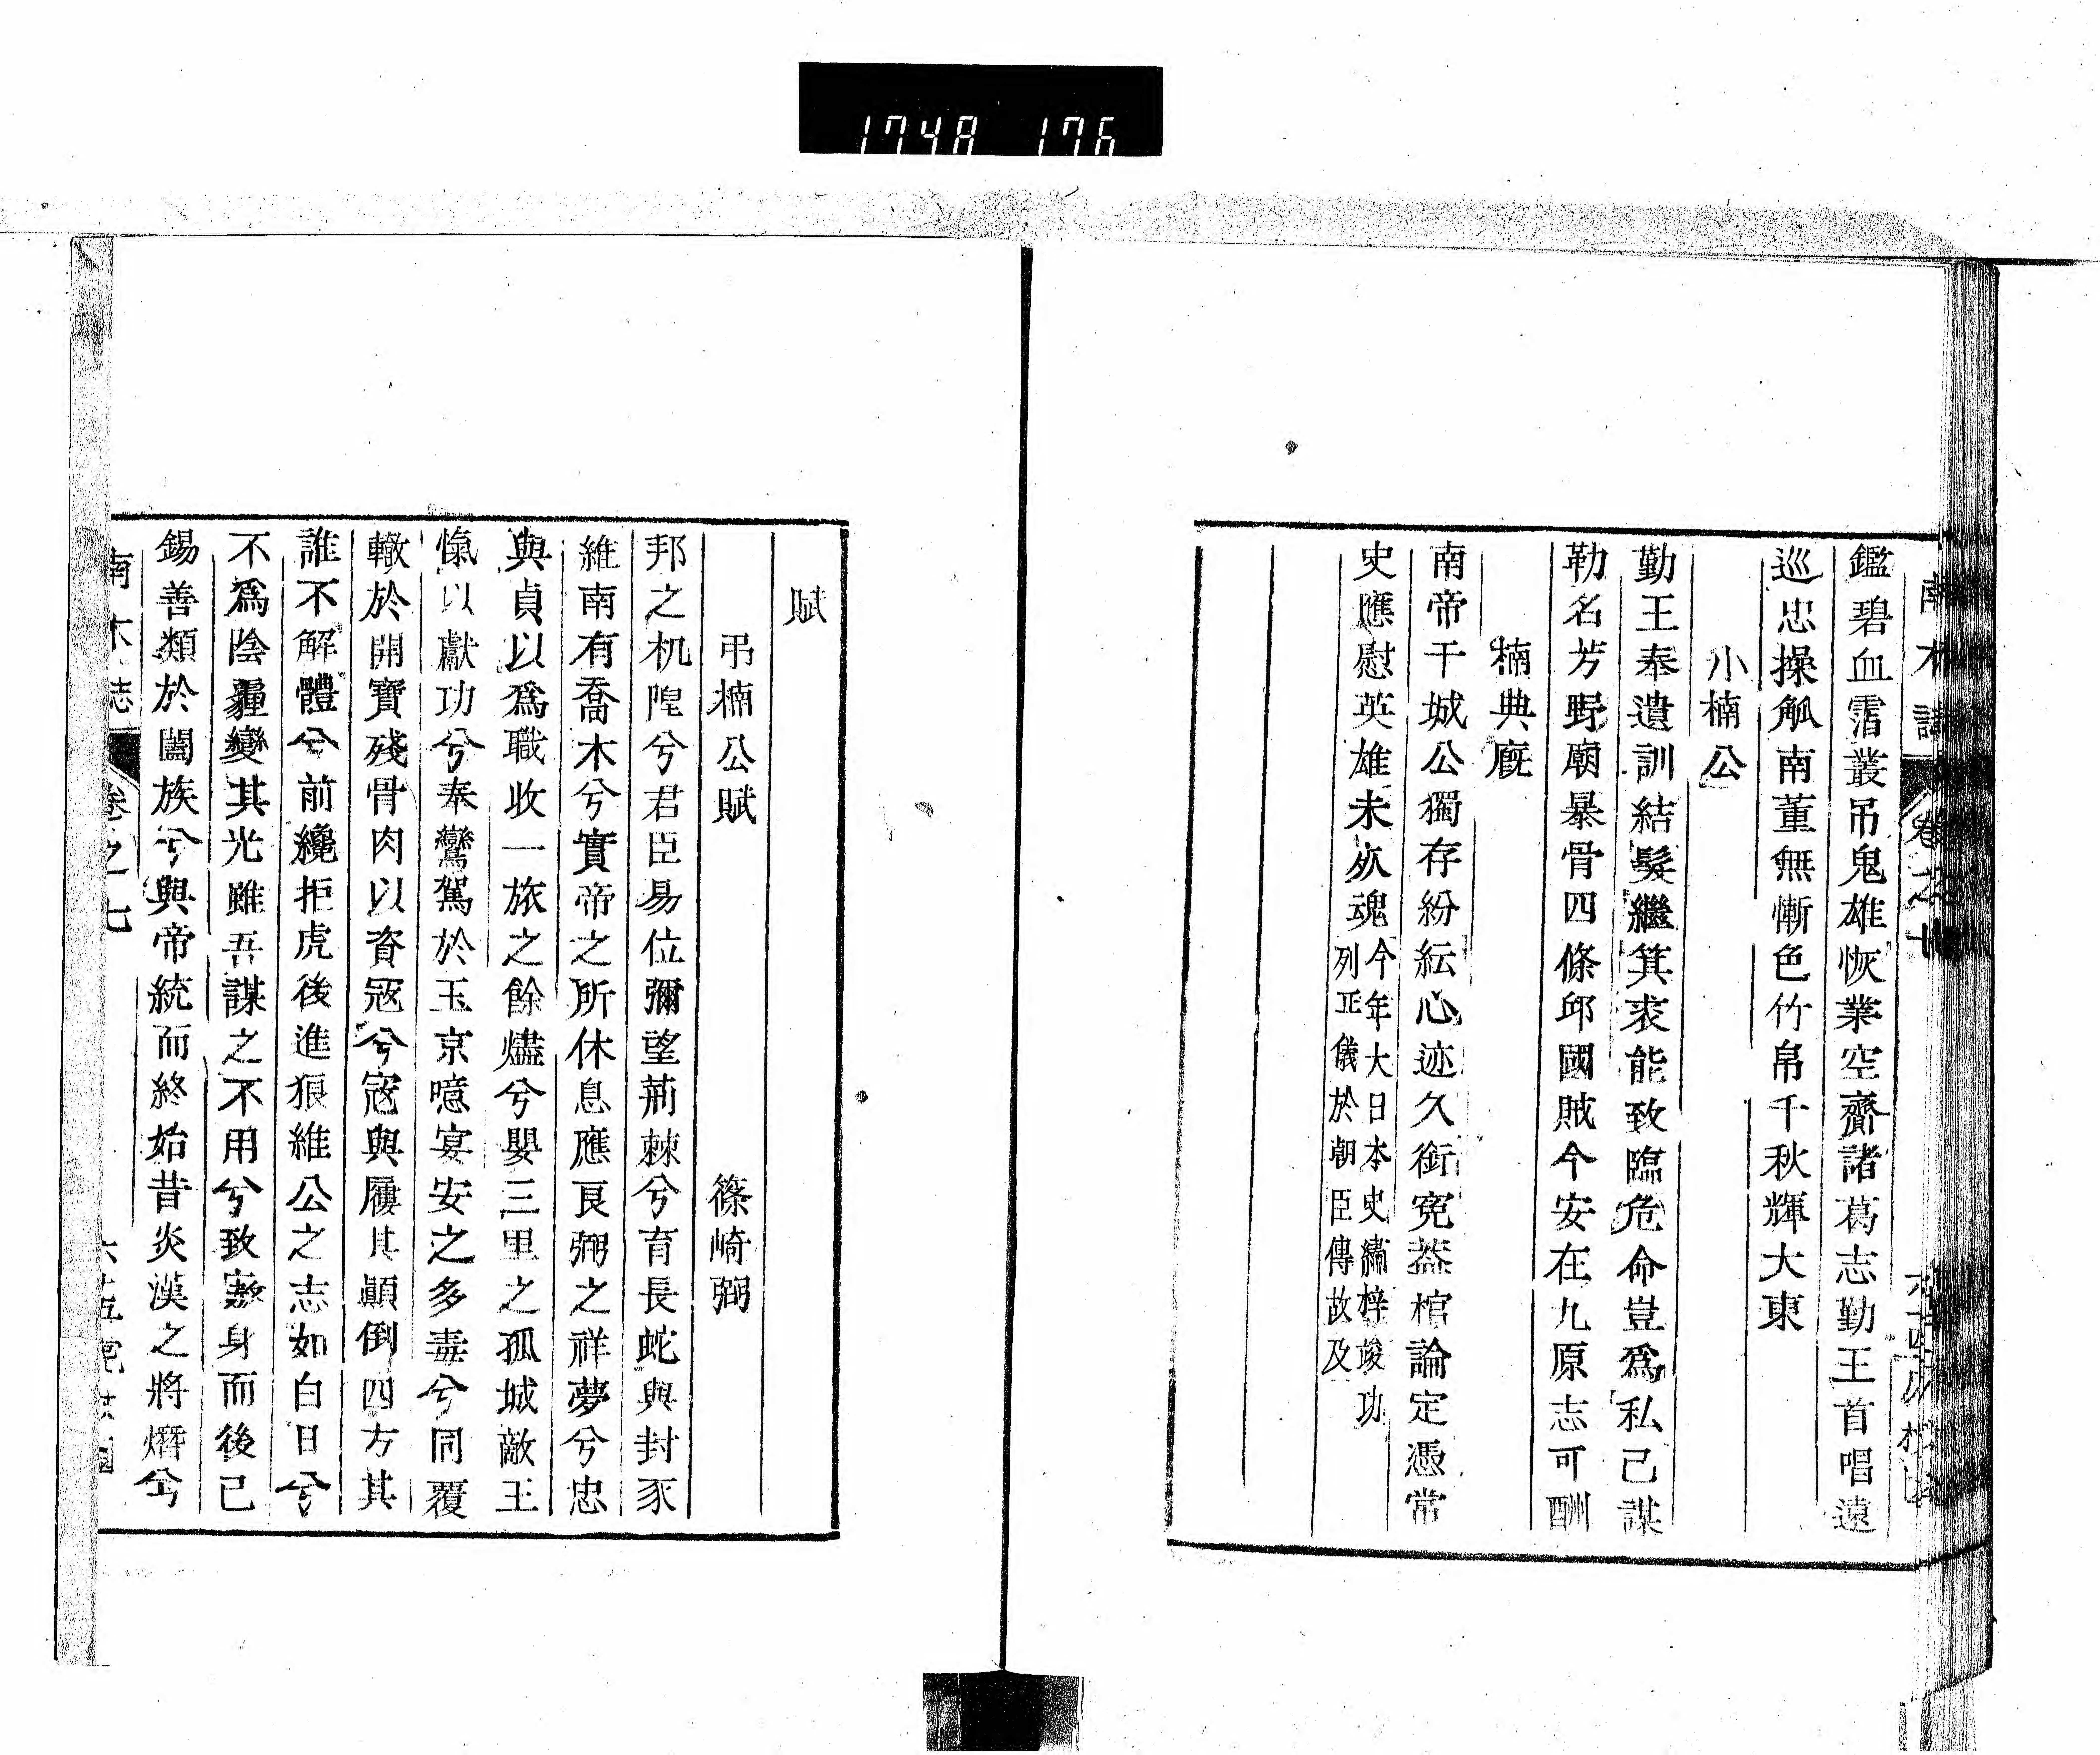 1748 176
鑑碧血霑叢吊鬼雄恢業空齊諸葛志勤王首唱遠
巡忠操觚南董無慚色竹帛千秋輝大東
小楠公
勤王奉遺訓結髮繼箕裘能致臨危命豈爲私己謀
勒名芳野廟暴骨四條邱國賊今安在九原志可酬
楠典廐
南帝干城公獨存紛紜心迹久銜寃蓋棺論定憑常
史應慰英雄未冺魂今年大日本史繡梓竣功
列正儀於朝臣傳故及
賦
弔楠公賦 篠崎弼
邦之杌隉兮君臣易位彌望荊棘兮育長蛇與封豕
維南有喬木兮實帝之所休息應良弼之祥夢兮忠
與貞以爲職收一旅之餘燼兮嬰三里之孤城敵王
愾以獻功兮奉鸞駕於玉京噫宴安之多毒兮同覆
轍於開寶殘骨肉以資寇兮寇與屨其顚倒四方其
誰不解體兮前纔拒虎後進狼維公之志如白日兮
不爲陰霾變其光雖吾謀之不用兮致蹇身而後已
錫善類於闔族兮與帝統而終始昔炎漢之將熸兮
南木誌 卷之七